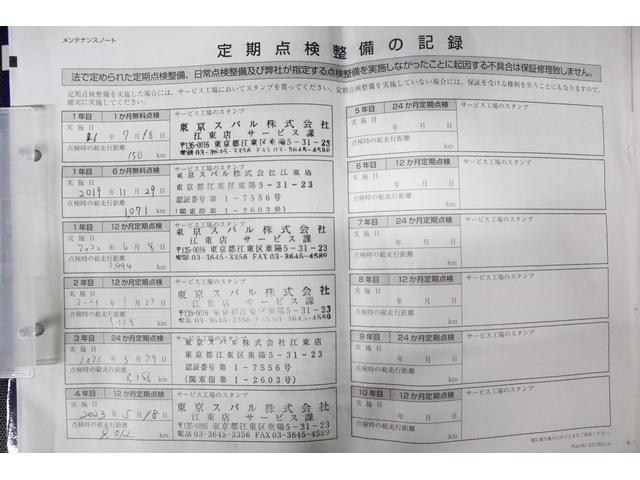 メンテナンスノート
定期点検整備の記録
法で定められた定期点検整備、日常点検整備及び弊社が指定する点検整備を実施しなかったことに起因する不具合は保証修理致しません。
定期点検整備を実施した場合には、サービス工場においてスタンプを貰ってください。定期点検整備を実施していない場合には、保証を受ける権利を失うこともなりますので、
確実に実施してください。
1年目 1か月無料点検 サービス工場のスタンプ
実施日
年 7月18日
点検時の総走行距離
150 km
東京スバル株式会社
江東店 サービス課
〒135-0016 東京都江東区東陽5-31-23
電話03-3645-3356 FAX03-3645-4589
1年目 6か月無料点検 サービス工場のスタンプ
実施日
2019年11月29日
点検時の総走行距離
1,071 km
東京スバル株式会社江東店
東京都江東区東陽5-31-23
認証番号第1-7556号
(関東指1-2603号)
1年目 12か月定期点検 サービス工場のスタンプ
実施日
2020年6月8日
点検時の総走行距離
km
東京スバル株式会社
江東店 サービス課
〒135-0016 東京都江東区東陽5-31-23
電話03-3645-3356 FAX03-3645-4589
2年目 12か月定期点検 サービス工場のスタンプ
実施日
2021年 月27日
点検時の総走行距離
km
東京スバル株式会社
江東店 サービス課
〒135-0016 東京都江東区東陽5-31-23
電話03-3645-3356 FAX03-3645-4589
3年目 24か月定期点検 サービス工場のスタンプ
実施日
2022年5月29日
点検時の総走行距離
8,156 km
東京スバル株式会社江東店
東京都江東区東陽5-31-23
認証番号第1-7556号
(関東指1-2603号)
4年目 12か月定期点検 サービス工場のスタンプ
実施日
2023年5月18日
点検時の総走行距離
9,012 km
東京スバル株式会社
江東店 サービス課
〒135-0016 東京都江東区東陽5-31-23
電話03-3645-3356 FAX03-3645-4589
5年目 24か月定期点検 サービス工場のスタンプ
実施日
年 月 日
点検時の総走行距離
km
6年目 12か月定期点検 サービス工場のスタンプ
実施日
年 月 日
点検時の総走行距離
km
7年目 24か月定期点検 サービス工場のスタンプ
実施日
年 月 日
点検時の総走行距離
km
8年目 12か月定期点検 サービス工場のスタンプ
実施日
年 月 日
点検時の総走行距離
km
9年目 24か月定期点検 サービス工場のスタンプ
実施日
年 月 日
点検時の総走行距離
km
10年目 12か月定期点検 サービス工場のスタンプ
実施日
年 月 日
点検時の総走行距離
km